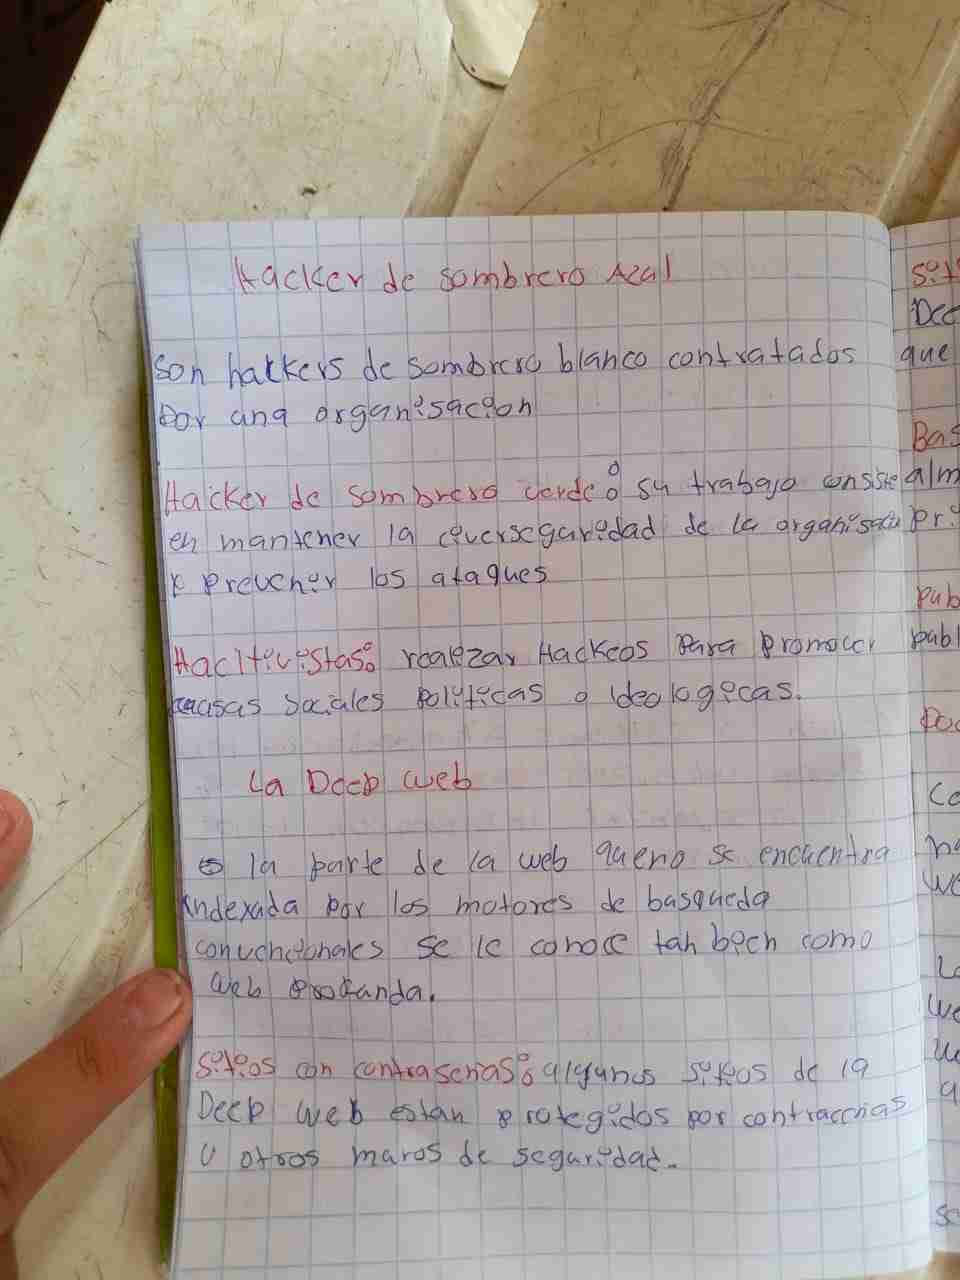 Hacker de sombrero Azul
Son hackers de sombrero blanco contratados
Por una organisacion
Hacker de sombrero verde: su trabajo consiste
en mantener la civerseguridad de la organisacion
y prevenir los ataques
Hacktivistas: realizar Hackeos para promover
causas sociales politicas o ideologicas.
La Deep web
es la parte de la web que no se encuentra
indexada por los motores de busqueda
convencionales se le conoce tan bien como
web profunda.
Sitios con contraseñas: algunos sitios de la
Deep web estan protegidos por contraceñas
u otros muros de seguridad.
que
Bas
alm
pri
pub
publ